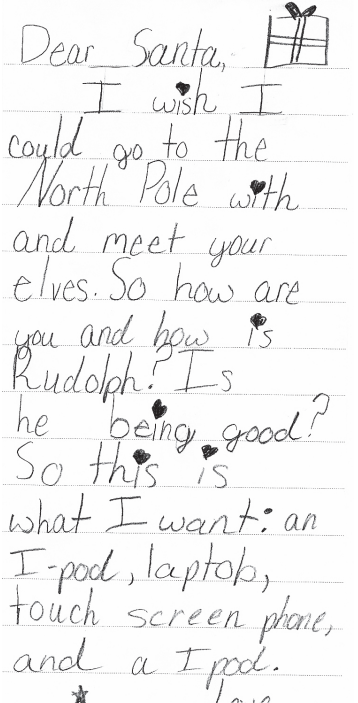 Dear Santa,
I wish I
could go to the
North Pole with
and meet your
elves. So how are
you and how is
Rudolph? Is
he being good?
So this is
what I want: an
I-pod, laptob,
touch screen phone,
and a I pod.